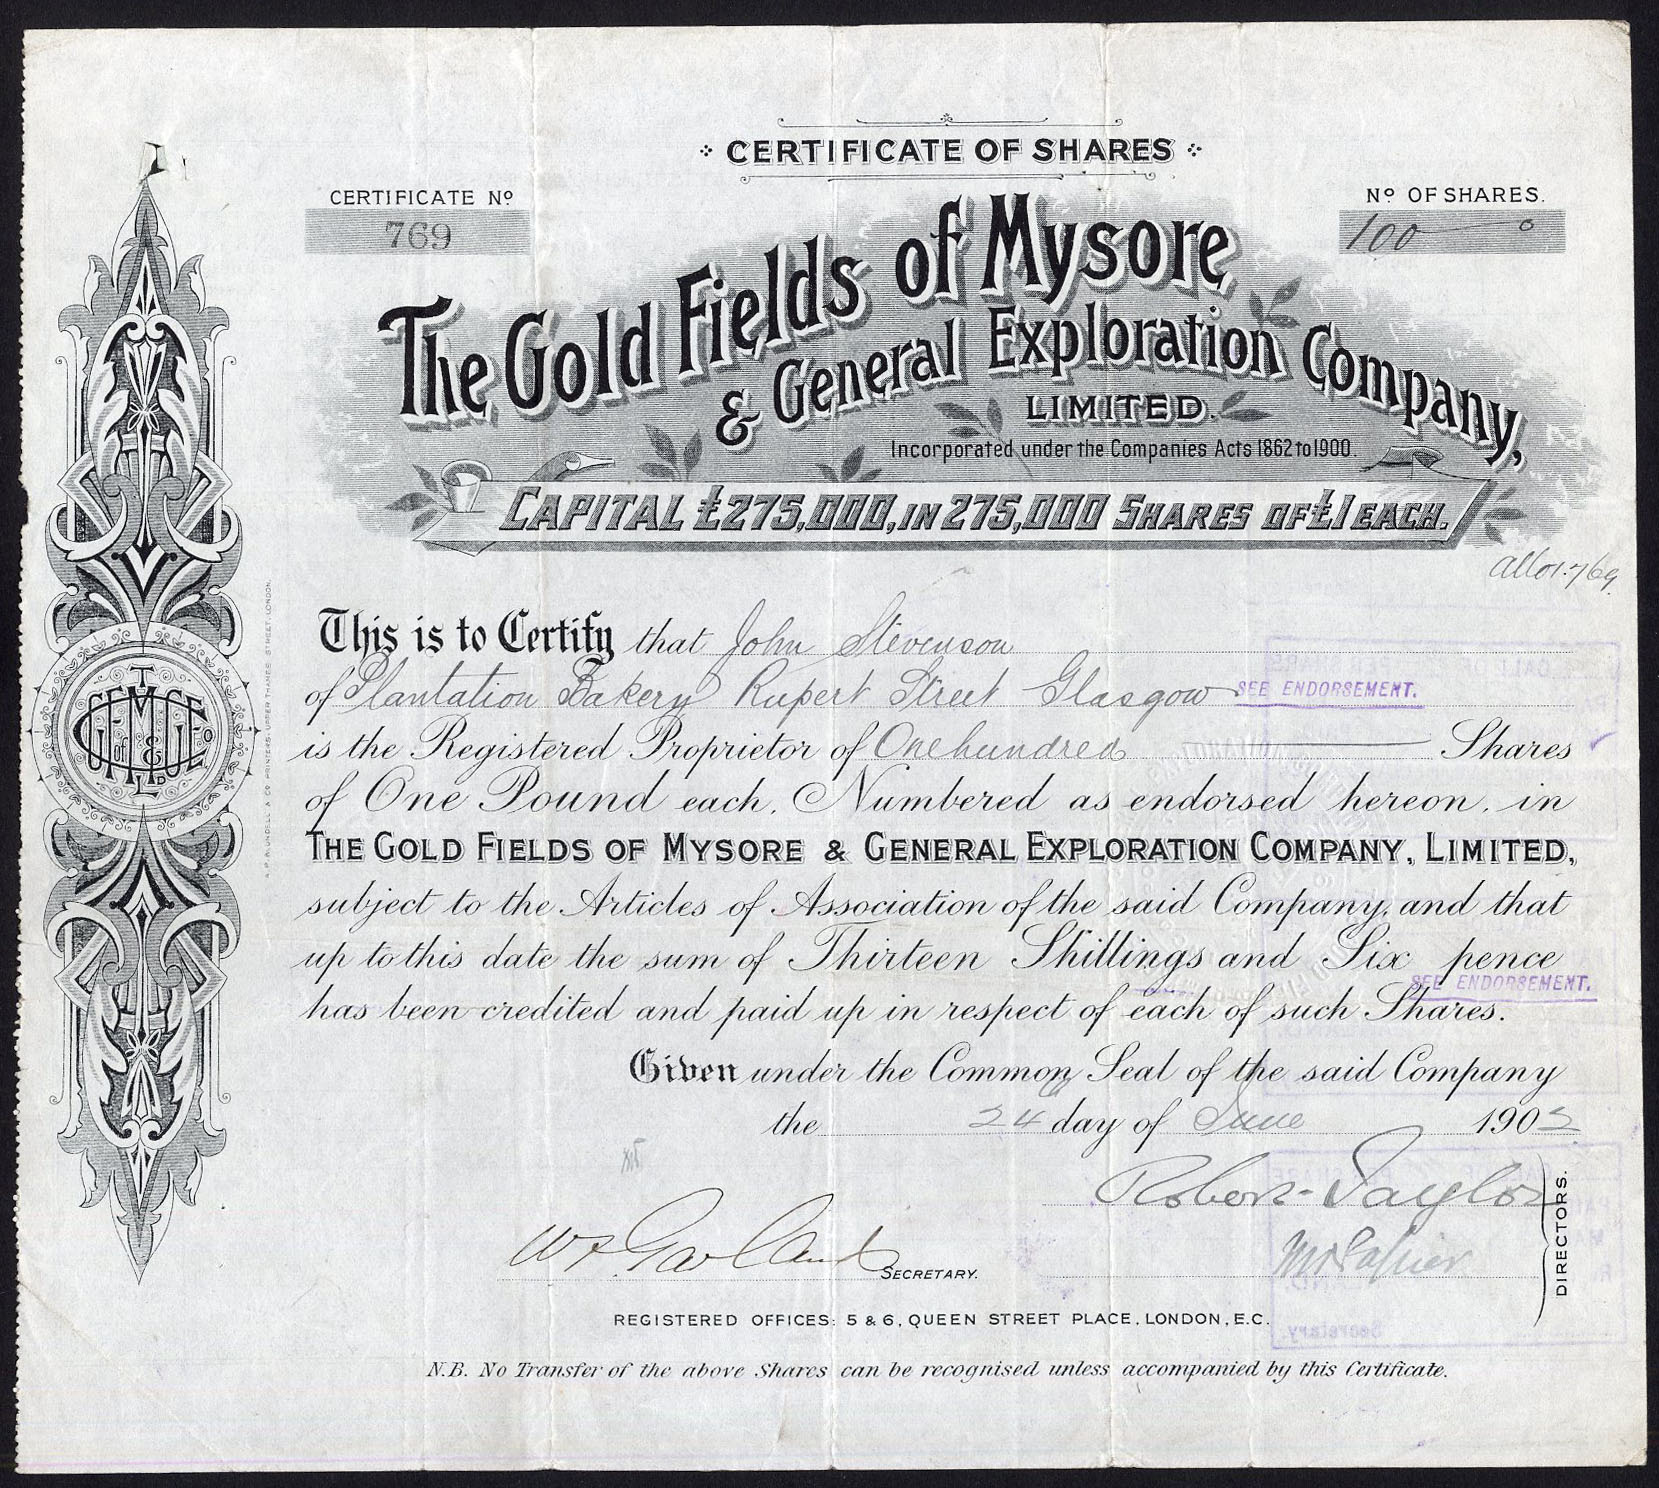 CERTIFICATE OF SHARES
CERTIFICATE No
769
No OF SHARES.
100
The Gold Fields of Mysore
& General Exploration Company,
LIMITED.
Incorporated under the Companies Acts 1862 to 1900.
CAPITAL £275,000, IN 275,000 SHARES OF £1 EACH.
Allot. 769
This is to Certify that John Stevenson
of Plantation Bakery Rupert Street Glasgow SEE ENDORSEMENT.
is the Registered Proprietor of One hundred Shares
of One Pound each, Numbered as endorsed hereon, in
THE GOLD FIELDS OF MYSORE & GENERAL EXPLORATION COMPANY, LIMITED,
subject to the Articles of Association of the said Company, and that
up to this date the sum of Thirteen Shillings and Six pence
SEE ENDORSEMENT.
has been credited and paid up in respect of each of such Shares.
Given under the Common Seal of the said Company
the 24 day of June 1902
Robert Taylor
DIRECTORS.
SECRETARY.
REGISTERED OFFICES: 5 & 6, QUEEN STREET PLACE, LONDON, E.C.
N.B. No Transfer of the above Shares can be recognised unless accompanied by this Certificate.